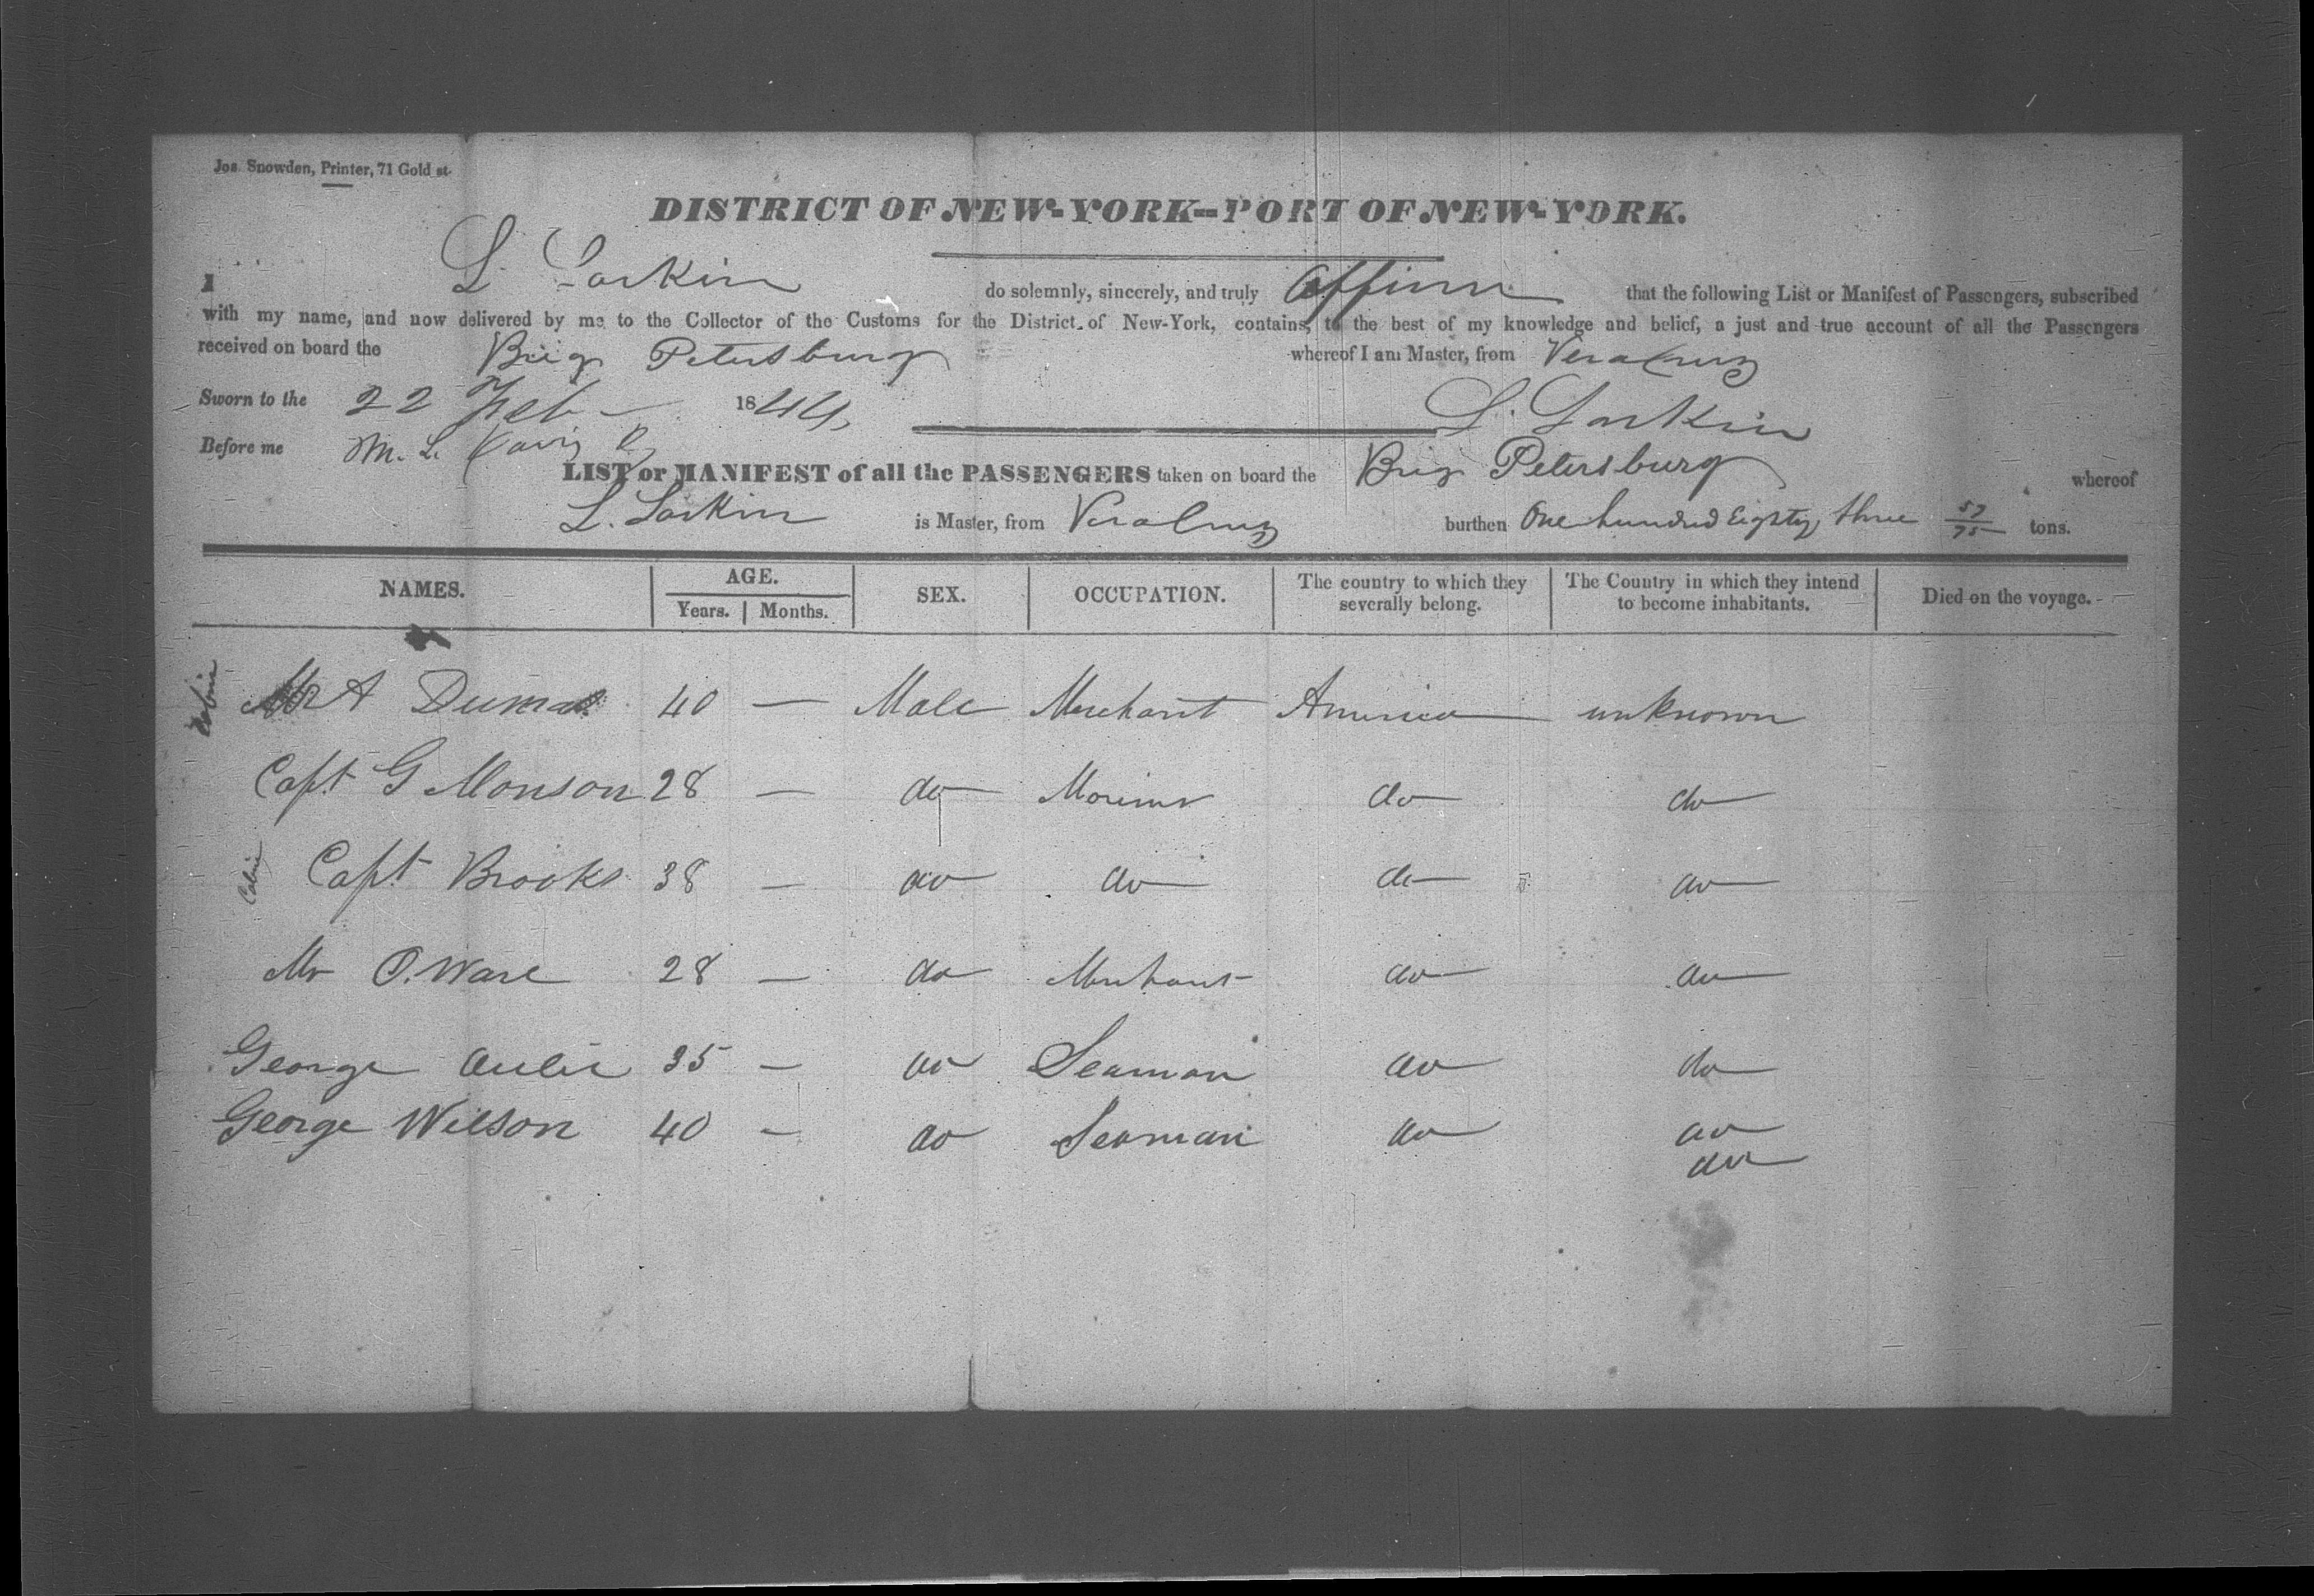 Jos. Snowden, Printer, 71 Gold st.
DISTRICT OF NEW-YORK--PORT OF NEW-YORK.
I L. Larkin do solemnly, sincerely, and truly affirm that the following List or Manifest of Passengers, subscribed
with my name, and now delivered by me to the Collector of the Customs for the District of New-York, contains, to the best of my knowledge and belief, a just and true account of all the Passengers
received on board the Brig Petersburg whereof I am Master, from Vera Cruz
Sworn to the 22 Feb 1844, L. Larkin
Before me M. L. Davis
LIST or MANIFEST of all the PASSENGERS taken on board the Brig Petersburg whereof
L. Larkin is Master, from Vera Cruz burthen One hundred Eighty three 57/95 tons.
NAMES. AGE. Years. Months. SEX. OCCUPATION. The country to which they severally belong. The Country in which they intend to become inhabitants. Died on the voyage.
Cabin
Mr A Dumas 40 — Male Merchant America unknown
Capt G Monson 28 — do Mariner do do
Cabin
Capt Brooks 38 — do do do do
Mr O. Ware 28 — do Merchant do do
George 35 — do Seaman do do
George Wilson 40 — do Seaman do do
do